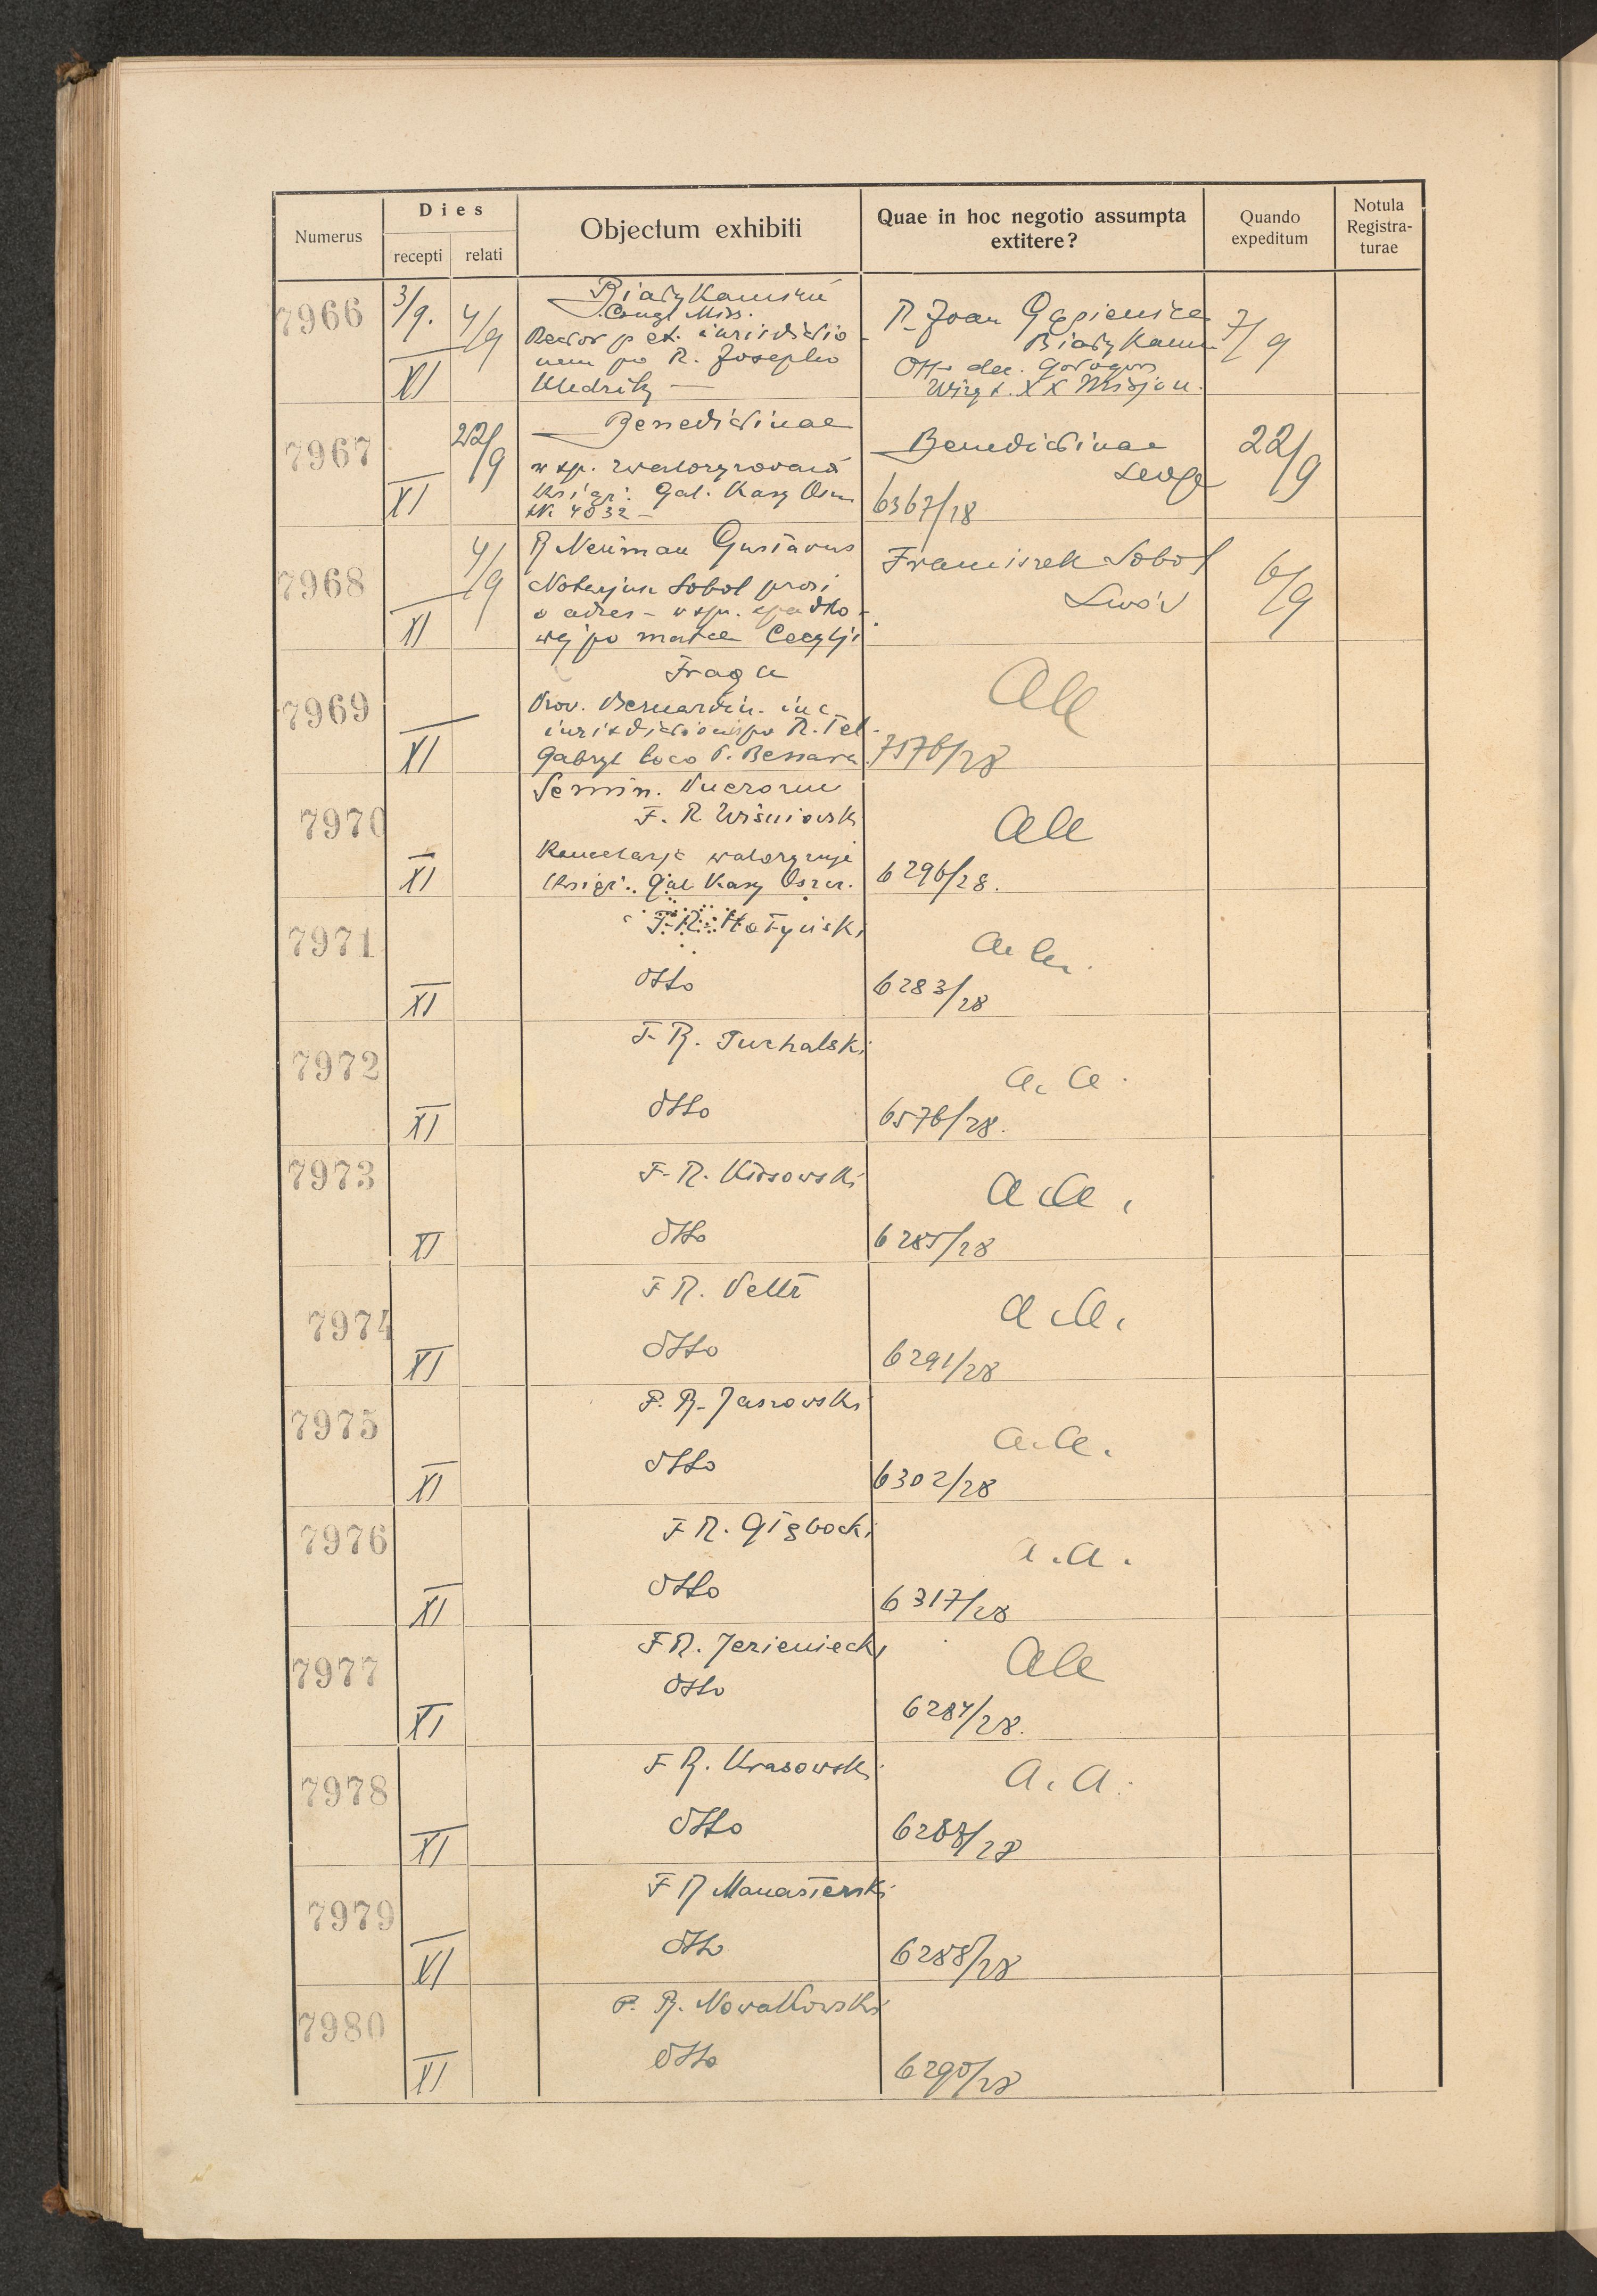 Numerus
Dies
recepti
relati
Objectum exhibiti
Quae in hoc negotio assumpta
extitere?
Quando
expeditum
Notula
Registra-
turae
7966
3/9.
4/9
XI
Biały Kamień
Congr. Miss.
Rector pet. iurisdictio-
nem po R. Josepho
R. Joan Gąsienica
Biały Kam.
Otto dec.
Wizyt. XX Misjon.
7/9
7967
22/9
XI
Benedictinae
w sp. zwaloryzowania
Książ. Gal. Kasy Osz.
N. 4832 –
Benedictinae
Leop.
6367/28
22/9
7968
4/9
XI
R Neuman Gustavus
Notarjusz Sobol prosi
o adres – w spr. spadko-
wej po matce Cecylji
Franciszek Sobol
Lwów
6/9
7969
XI
Fraga
Prov. Bernardin. inc.
iurisdictionis po R. Tel.
Gabryl loco P. Bessara
Ale
7576/28
7970
XI
Semin. Puerorum
F. R Wiśniowski
Kancelarja waloryzuje
Książ.. Gal Kasy Oszcz.
aa
6296/28.
7971
XI
F. R. Hołyński
dtto
a. a.
6283/28
7972
XI
F. R. Puchalski
dtto
a. a.
6576/28.
7973
XI
F. R. Kossowski
dtto
a a.
6285/28
7974
XI
F R.
dtto
a a.
6291/28
7975
XI
F. R. Jasnowski
dtto
a. a.
6302/28
7976
XI
F R. Głębocki
dtto
a. a.
6317/28
7977
XI
F R. Jezieniecki
dtto
aa
6284/28.
7978
XI
F R. Krasowski
dtto
a. a.
6287/28
7979
XI
F R Manasterski
dtto
6288/28
7980
XI
F. R. Nowakowski
dtto
6290/28